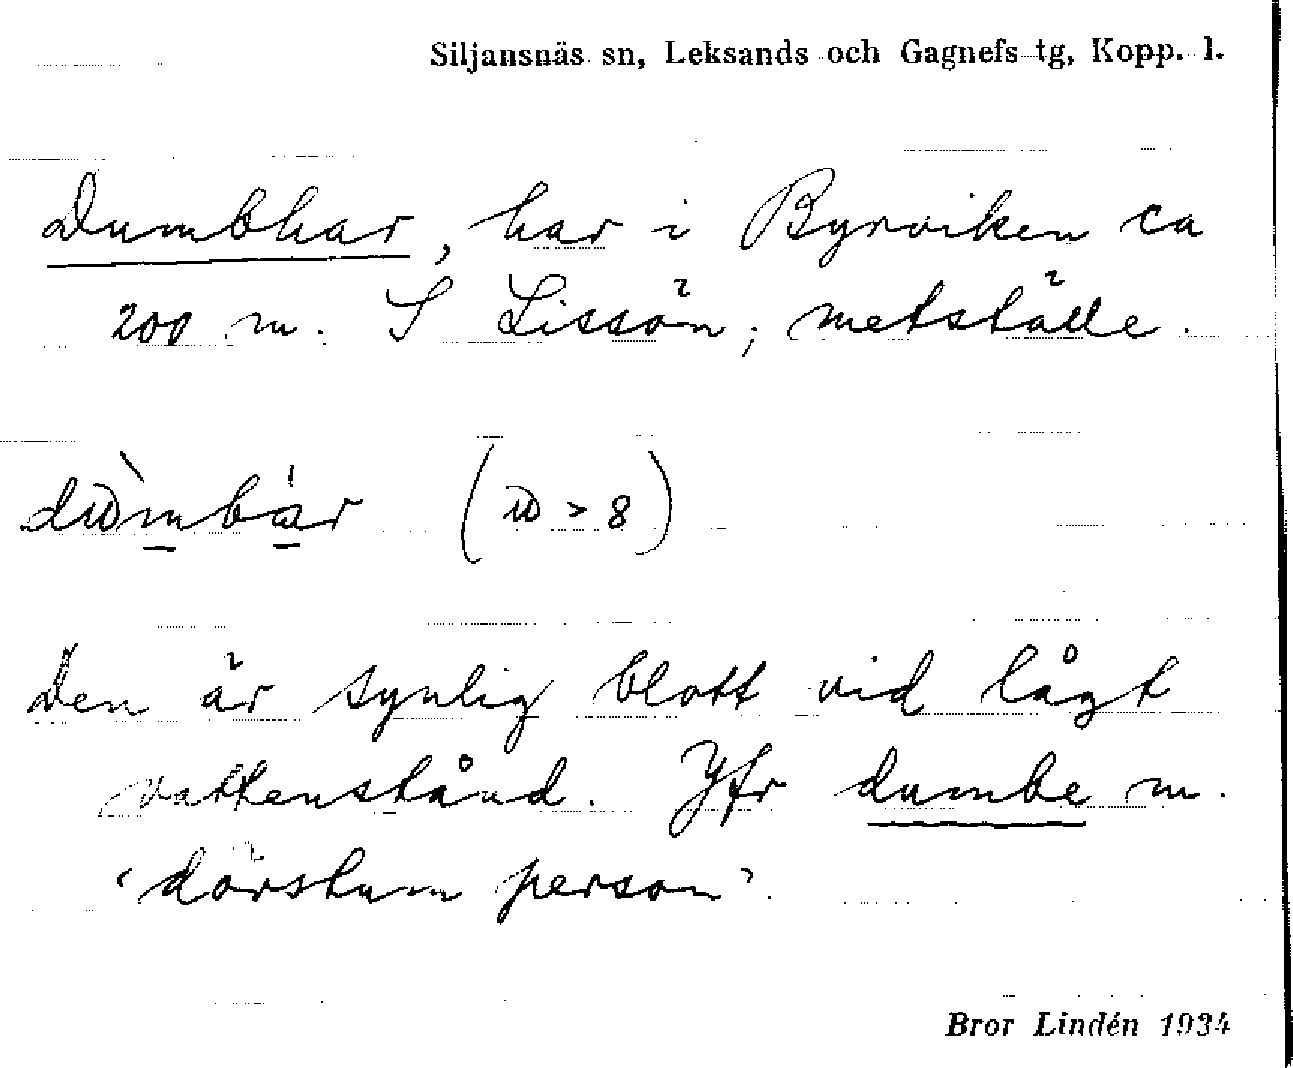 Siljansnäs sn, Leksands och Gagnefs tg, Kopp. l.
Dumbhar, har i Byrviken ca
200 m. S Lissön; metställe.
Den är synlig blott vid lågt
vattenstånd. Jfr dumbe m.
‘dövstum person’.
Bror Lindén 1934